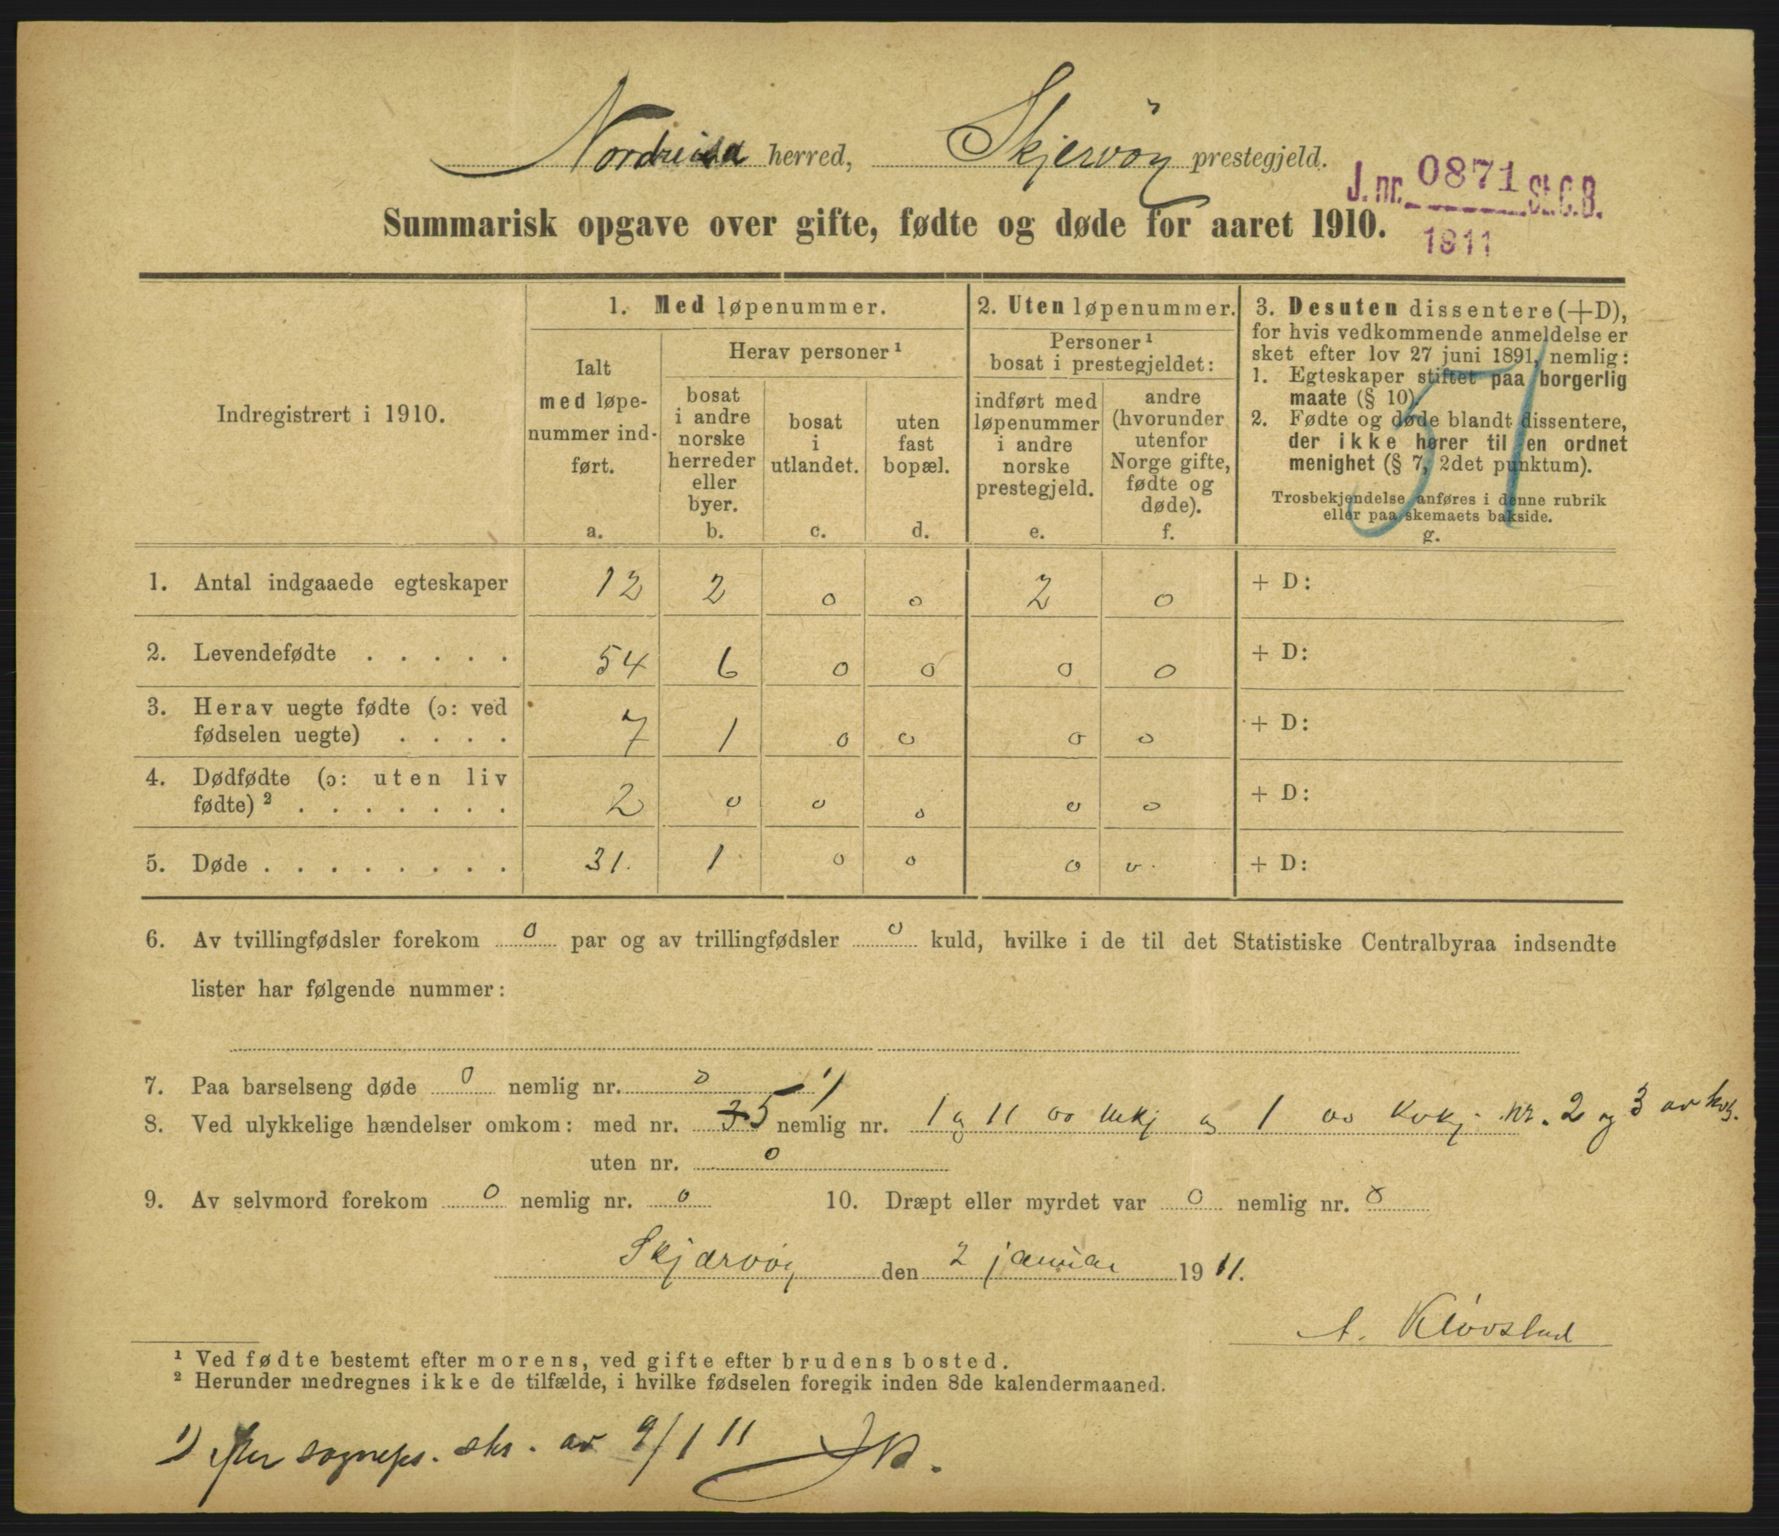 Nordreisa herred, Skjervöy prestegjeld.
J. nr. 0871 St.C.B.
1911
Summarisk opgave over gifte, fødte og døde for aaret 1910.
51
Indregistrert i 1910.
1. Med løpenummer.
Ialt med løpe-nummer ind-ført.
a.
Herav personer¹
bosat i andre norske herreder eller byer.
b.
bosat i utlandet.
c.
uten fast bopæl.
d.
2. Uten løpenummer.
Personer¹ bosat i prestegjeldet:
indført med løpenummer i andre norske prestegjeld.
e.
andre (hvorunder utenfor Norge gifte, fødte og døde).
f.
3. Desuten dissentere (+D),
for hvis vedkommende anmeldelse er
sket efter lov 27 juni 1891, nemlig:
1. Egteskaper stiftet paa borgerlig
maate (§ 10).
2. Fødte og døde blandt dissentere,
der ikke hører til en ordnet
menighet (§ 7, 2det punktum).
Trosbekjendelse anføres i denne rubrik
eller paa skemaets bakside.
g.
1. Antal indgaaede egteskaper 12 2 0 0 2 0 + D:
2. Levendefødte . . . . . 54 6 0 0 0 0 + D:
3. Herav uegte fødte (ɔ: ved
fødselen uegte) . . . . 7 1 0 0 0 0 + D:
4. Dødfødte (ɔ: uten liv
fødte) ² . . . . . . . 2 0 0 0 0 0 + D:
5. Døde . . . . . . . . 31. 1 0 0 0 0 + D:
6. Av tvillingfødsler forekom 0 par og av trillingfødsler 0 kuld, hvilke i de til det Statistiske Centralbyraa indsendte
lister har følgende nummer:
7. Paa barselseng døde 0 nemlig nr. 0
8. Ved ulykkelige hændelser omkom: med nr. 3 5 ¹) nemlig nr. 1 og 11 av mkj og 1 av kvkj. nr. 2 og 3 av kvkj.
uten nr. 0
9. Av selvmord forekom 0 nemlig nr. 0 10. Dræpt eller myrdet var 0 nemlig nr. 0
Skjærvöy den 2 januar 1911.
A. Klövstad
¹ Ved fødte bestemt efter morens, ved gifte efter brudens bosted.
² Herunder medregnes ikke de tilfælde, i hvilke fødselen foregik inden 8de kalendermaaned.
¹) efter sogneps. skr. av 9/1 11